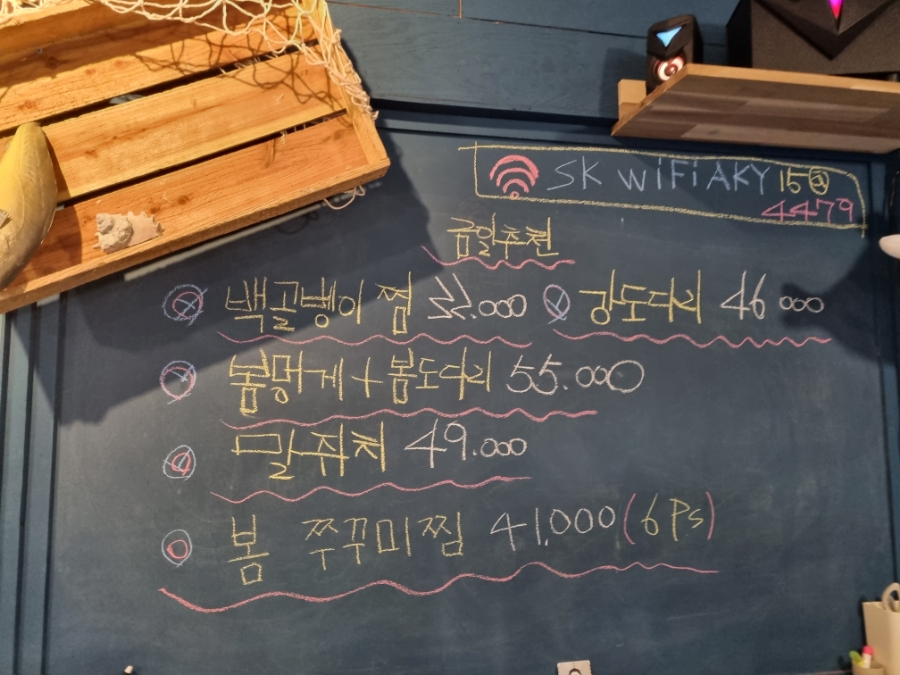 SK WiFi AKY 15
4479
금일추천
백골뱅이 찜 32.000 강도다리 46 000
봄멍게 + 봄도다리 55.000
말쥐치 49.000
봄 쭈꾸미찜 41,000 (6 Ps)